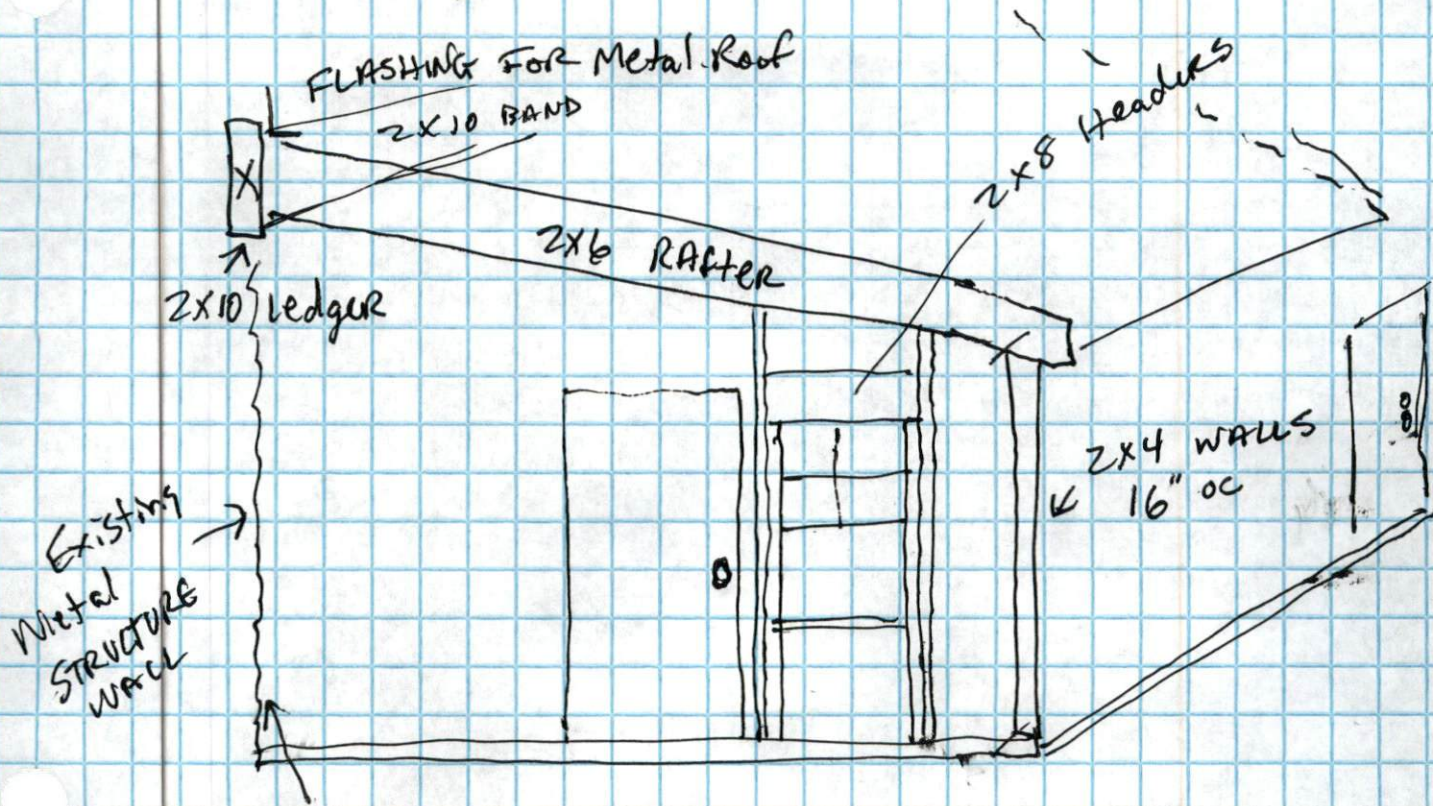 FLASHING FOR Metal Roof
2X10 BAND
2X8 Headers
2X6 RAFTER
2X10 Ledger
2X4 WALLS
16" OC
Existing
Metal
STRUCTURE
WALL